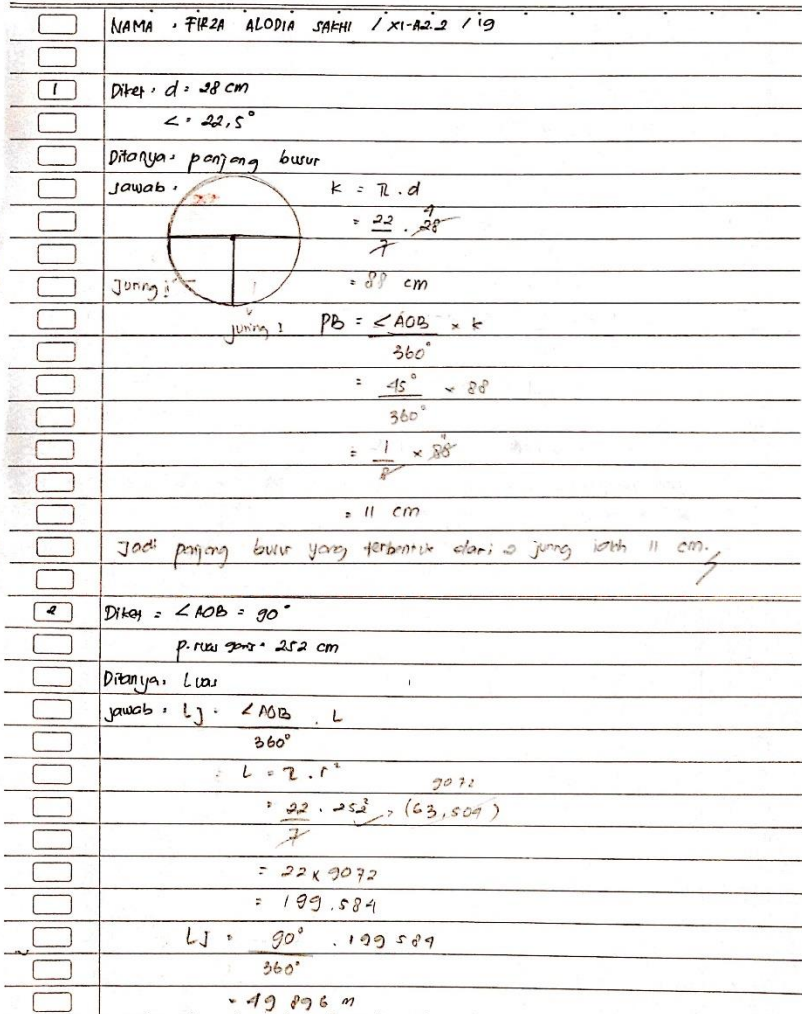 NAMA : FIRZA ALODIA SAKHI / XI-A2.2 / 19
1 Diket : d = 28 cm
< = 22,5°
Ditanya : panjang busur
Jawab : K = π . d
= 22/7 . 28 4
= 88 cm
Juring
juring 1
PB = <AOB/360° × k
= 45°/360° × 88
= 1/8 × 88
= 11 cm
Jadi panjang busur yang terbentuk dari 2 juring ialah 11 cm.
2 Diket = <AOB = 90°
p. ruas garis = 252 cm
Ditanya : Luas
jawab : LJ = <AOB/360° . L
= L = π . r²
= 22/7 . 252² → (63,504) 9072
= 22 x 9072
= 199.584
LJ = 90°/360° . 199 584
= 49 896 m